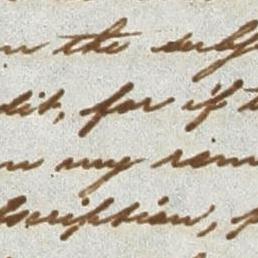 on the subj
dit, for if t
on my rem
bscription, p